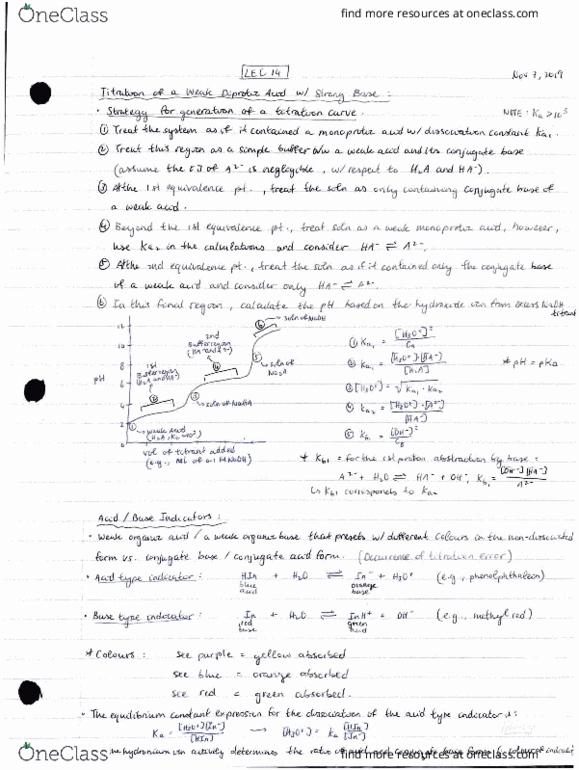 OneClass
find more resources at oneclass.com
LEC 14
Nov 7, 2019
Titration of a Weak Diprotic Acid w/ Strong Base :
• Strategy for generation of a titration curve.
NOTE : Ka > 10³
① Treat the system as if it contained a monoprotic acid w/ dissociation constant Ka₁.
② Treat this region as a simple buffer b/w a weak acid and its conjugate base
(assume the [ ] of A²⁻ is negligible, w/ respect to H₂A and HA⁻).
③ At the 1st equivalence pt., treat the soln as only containing conjugate base of
a weak acid.
④ Beyond the 1st equivalence pt., treat soln as a weak monoprotic acid, however,
use Ka₂ in the calculations and consider HA⁻ ⇌ A²⁻.
⑤ At the 2nd equivalence pt., treat the soln as if it contained only the conjugate base
of a weak acid and consider only HA⁻ ⇌ A²⁻.
⑥ In this final region, calculate the pH based on the hydroxide ion from excess NaOH
titrant
soln of NaOH
2nd
Buffer region
(HA⁻ and A²⁻)
1st
Buffer region
pH
soln of
Na₂A
soln of NaHA
weak acid
vol of titrant added
(e.g., mL of 0.1 M NaOH)
12
10
8
6
4
2
0
① Ka₁ = [H₃O⁺]² / Ca
② Ka₁ = [H₃O⁺]·[HA⁻] / [H₂A]
* pH = pKa
③ [H₃O⁺] = √Ka₁ · Ka₂
④ Ka₂ = [H₃O⁺]·[A²⁻] / [HA⁻]
⑤ Kb₁ = [OH⁻]² / CB
* Kb₁ = for the 1st proton abstraction by base :
A²⁻ + H₂O ⇌ HA⁻ + OH⁻, Kb₁ = [OH⁻][HA⁻] / A²⁻
↳ Kb₁ corresponds to Ka₂
Acid / Base Indicators :
• Weak organic acid / a weak organic base that presets w/ different colours in the non-dissociated
form vs. conjugate base / conjugate acid form. (Occurrence of titration error)
• Acid type indicator : HIn + H₂O ⇌ In⁻ + H₃O⁺ (e.g., phenolphthalein)
blue acid orange base
• Base type indicator : In + H₂O ⇌ InH⁺ + OH⁻ (e.g., methyl red)
red base green acid
* Colours : see purple = yellow absorbed
see blue = orange absorbed
see red = green absorbed.
• The equilibrium constant expression for the dissociation of the acid type indicator is :
Ka = [H₃O⁺][In⁻] / [HIn] → [H₃O⁺] = Ka [HIn] / [In⁻]
hydronium ion actively determines the ratio of
OneClass
find more resources at oneclass.com